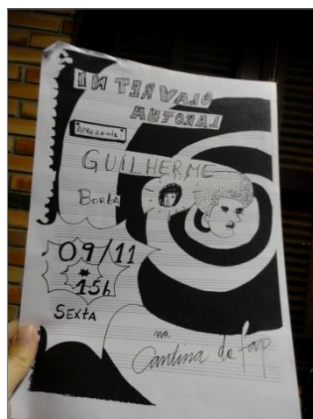 INTERVALO
AUTORAL
Apresenta:
GUILHERME
Borba
09/11
15h
Sexta
na
Cantina da